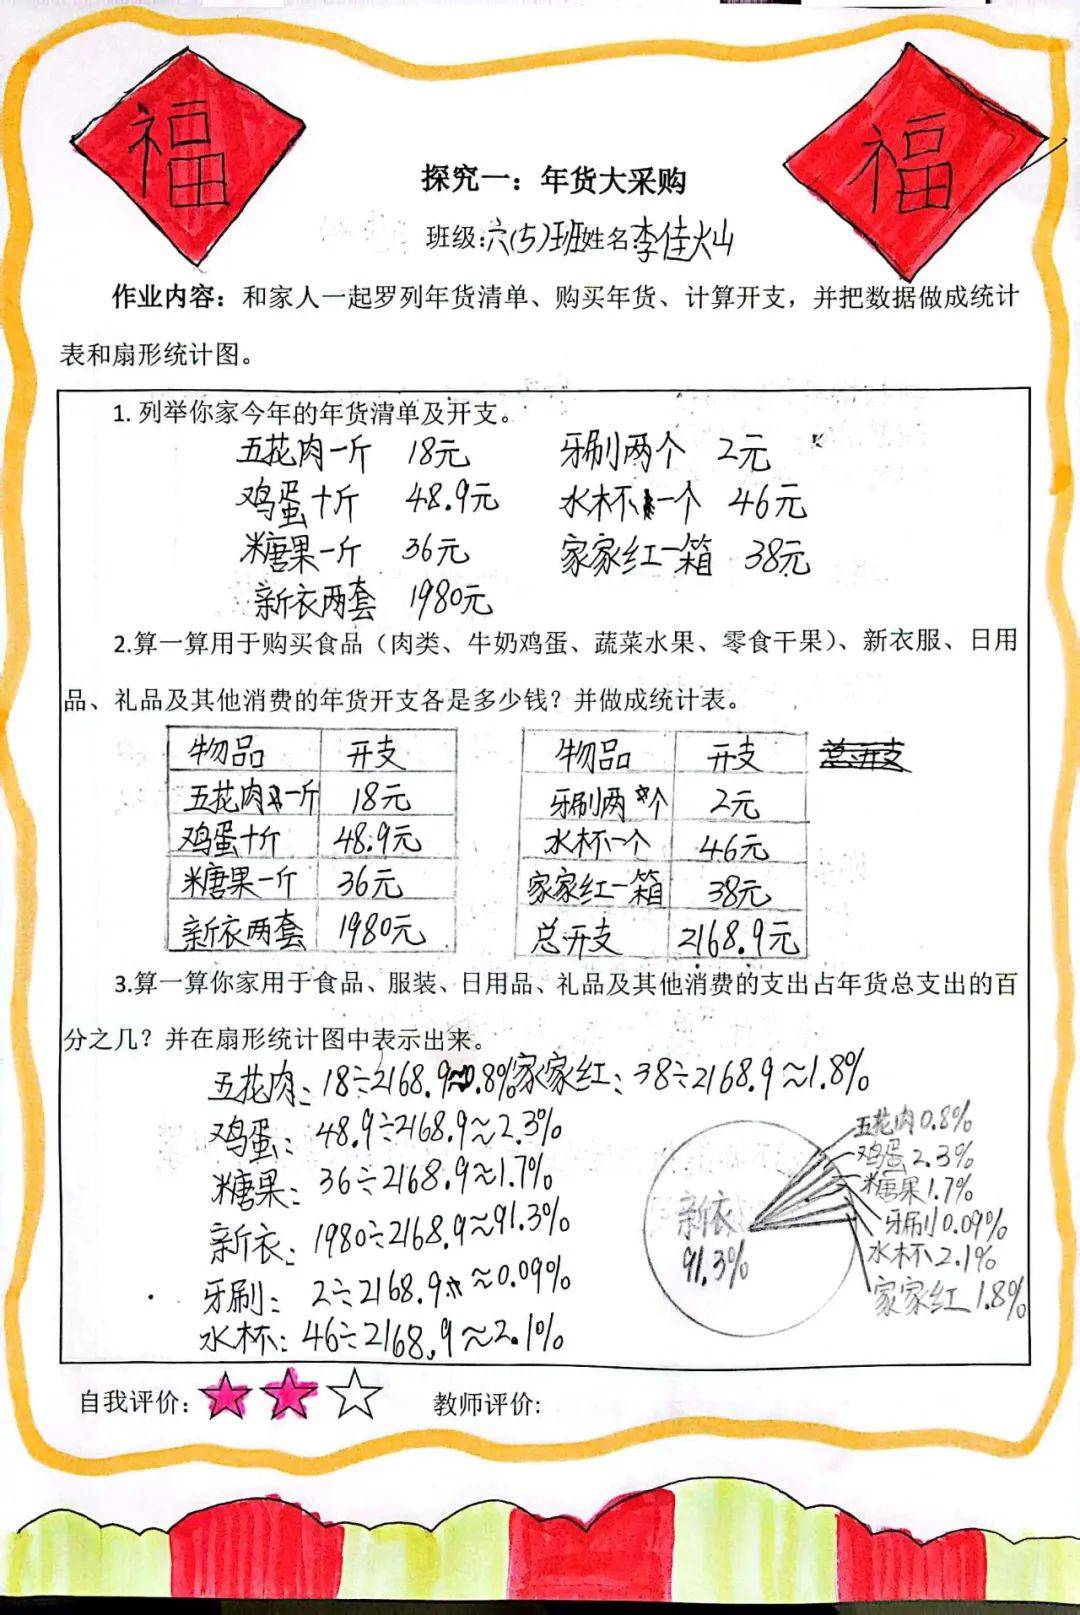 福
福
探究一：年货大采购
班级:六(5)班姓名李佳灿
作业内容：和家人一起罗列年货清单、购买年货、计算开支，并把数据做成统计
表和扇形统计图。
1. 列举你家今年的年货清单及开支。
五花肉一斤 18元 牙刷两个 2元
鸡蛋十斤 48.9元 水杯一个 46元
糖果一斤 36元 家家红一箱 38元
新衣两套 1980元
2.算一算用于购买食品（肉类、牛奶鸡蛋、蔬菜水果、零食干果）、新衣服、日用
品、礼品及其他消费的年货开支各是多少钱？并做成统计表。
物品 开支 物品 开支 总开支
五花肉一斤 18元 牙刷两个 2元
鸡蛋十斤 48.9元 水杯一个 46元
糖果一斤 36元 家家红一箱 38元
新衣两套 1980元 总开支 2168.9元
3.算一算你家用于食品、服装、日用品、礼品及其他消费的支出占年货总支出的百
分之几？并在扇形统计图中表示出来。
五花肉：18÷2168.9≈0.8% 家家红：38÷2168.9≈1.8%
鸡蛋：48.9÷2168.9≈2.3%
糖果：36÷2168.9≈1.7%
新衣：1980÷2168.9≈91.3%
牙刷：2÷2168.9≈0.09%
水杯：46÷2168.9≈2.1%
新衣
91.3%
五花肉0.8%
鸡蛋2.3%
糖果1.7%
牙刷0.09%
水杯2.1%
家家红1.8%
自我评价： 教师评价: